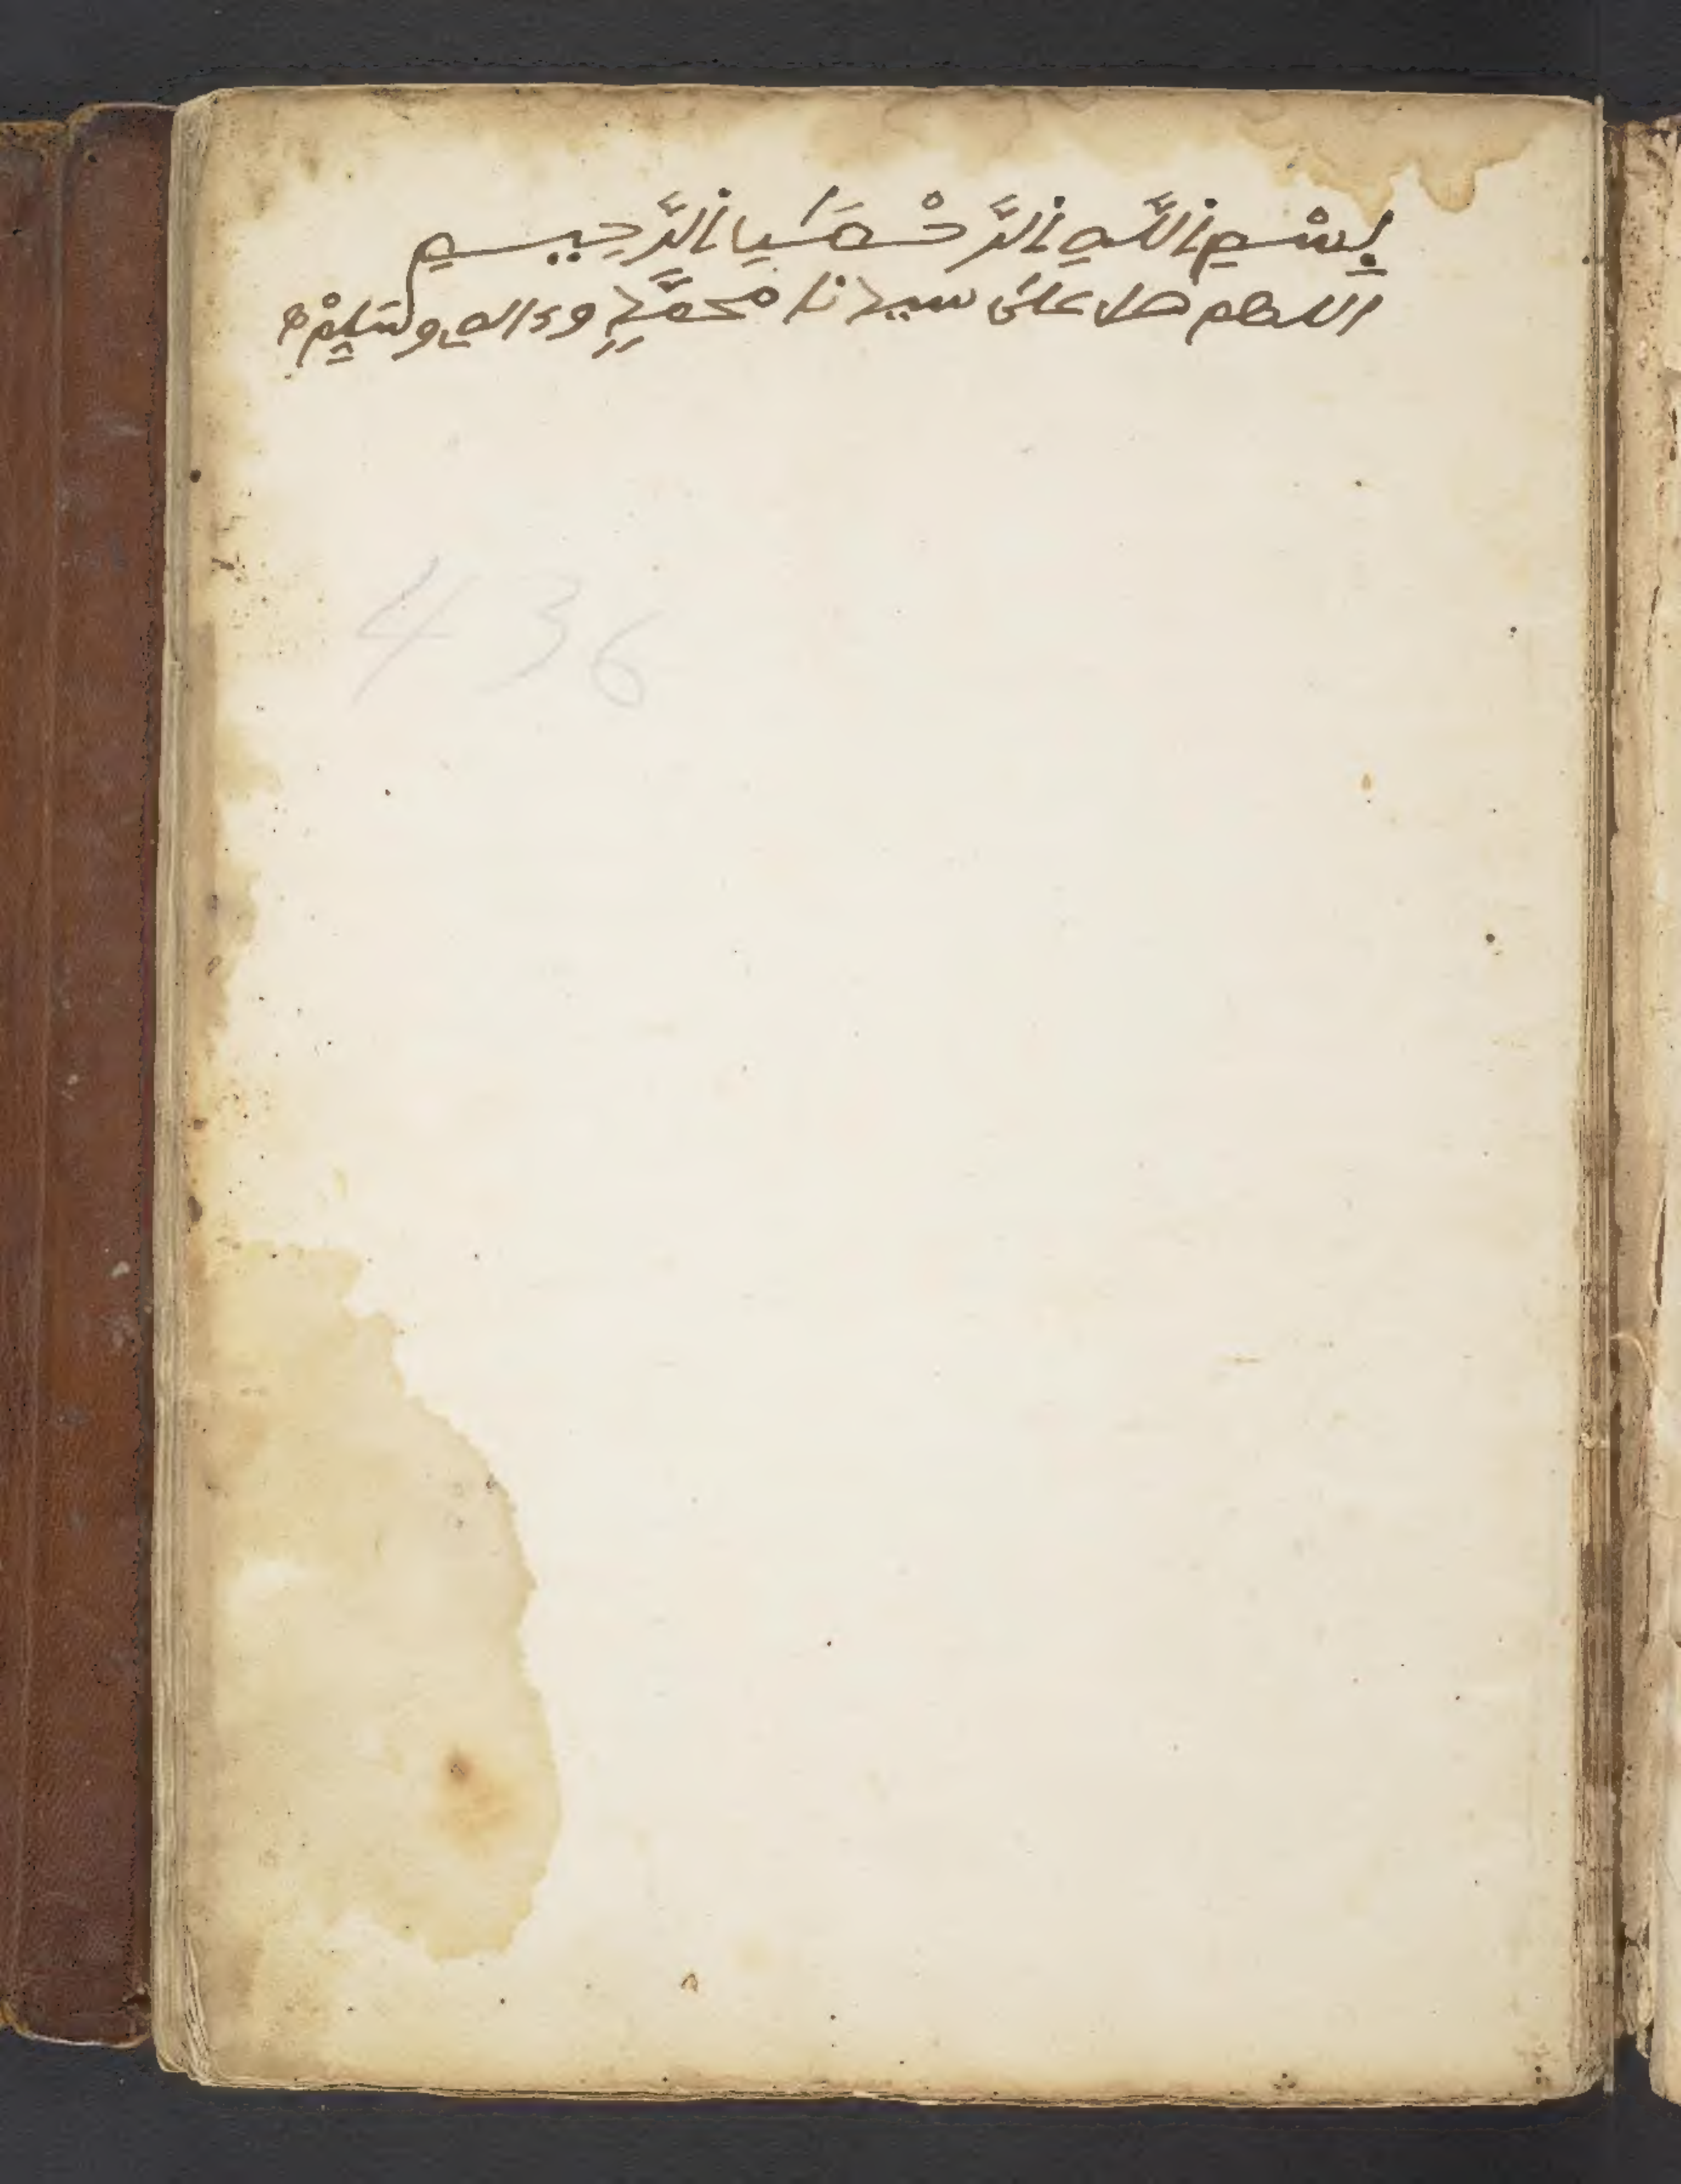 بِسْمِ اللَّهِ الرَّحْمَٰنِ الرَّحِيمِ
اللهم صل على سيدنا محمَّدٍ وءالهِ وسَلِّمْ
436